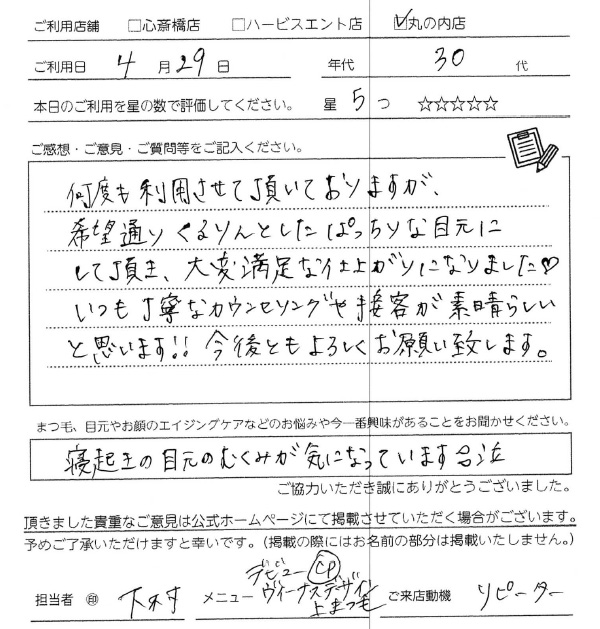 ご利用店舗 □心斎橋店 □ハービスエント店 ☑丸の内店
ご利用日 4 月 29 日 年代 30 代
本日のご利用を星の数で評価してください。 星 5 つ ☆☆☆☆☆
ご感想・ご意見・ご質問等をご記入ください。
何度も利用させて頂いておりますが、
希望通りくるりんとしたぱっちりな目元に
して頂き、大変満足な仕上がりになりました♡
いつも丁寧なカウンセリングや接客が素晴らしい
と思います!! 今後ともよろしくお願い致します。
まつ毛、目元やお顔のエイジングケアなどのお悩みや今一番興味があることをお聞かせください。
寝起きの目元のむくみが気になっています
ご協力いただき誠にありがとうございました。
頂きました貴重なご意見は公式ホームページにて掲載させていただく場合がございます。
予めご了承いただけますと幸いです。(掲載の際にはお名前の部分は掲載いたしません。)
デビューcp
担当者 ㊞ 下村 メニュー ヴィーナスデザイン ご来店動機 リピーター
上まつ毛